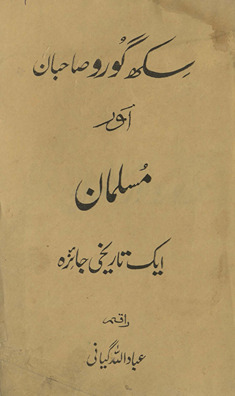 سکھ گورو صاحبان
اور
مسلمان
ایک تاریخی جائزہ
راقم
عباداللہ گیانی